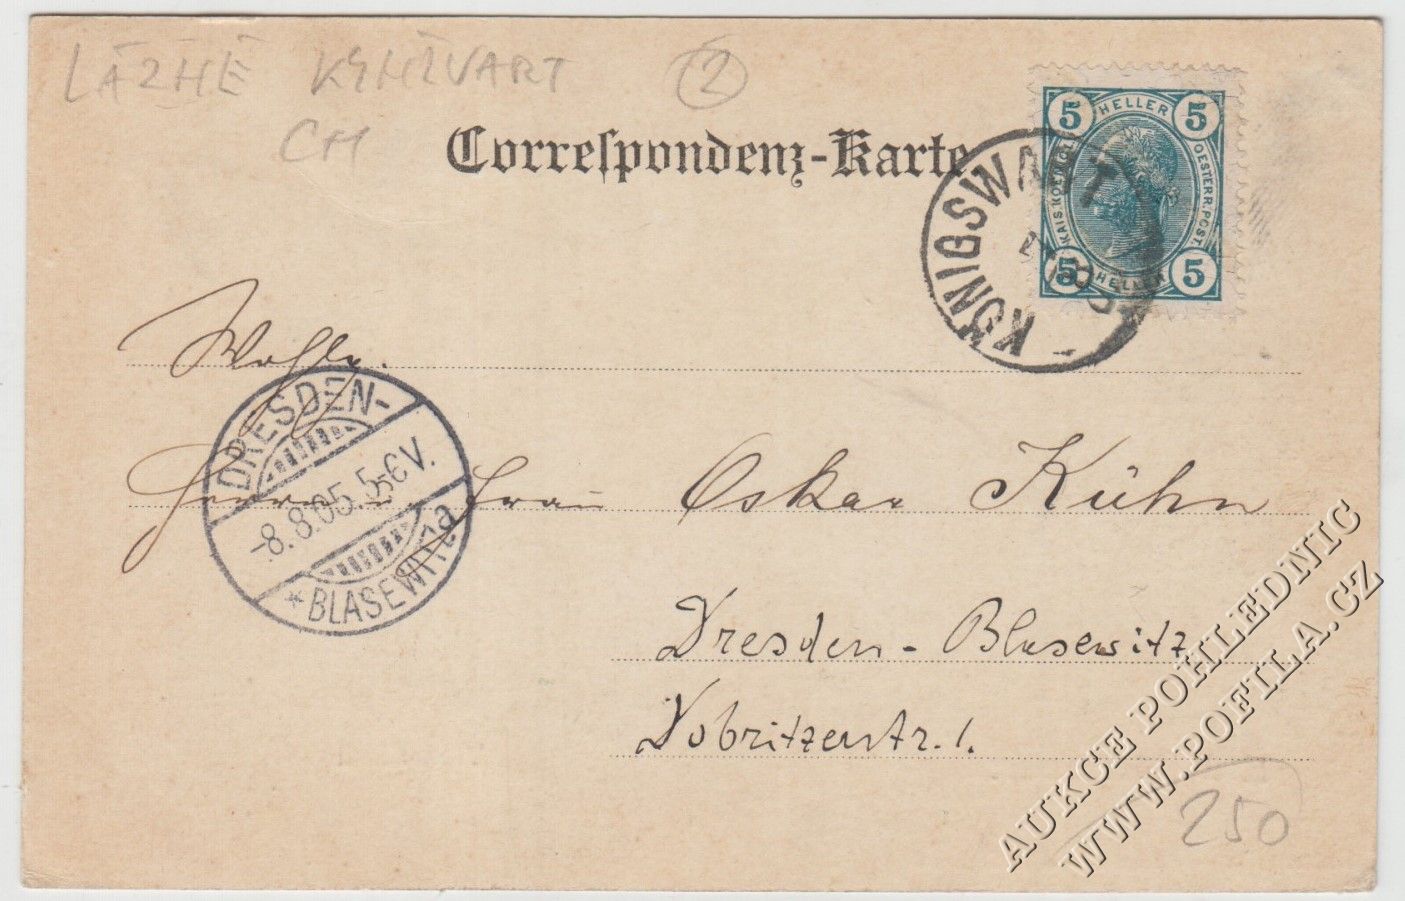 LÁZNĚ KYNŽVART 2
CH
Correſpondenz-Karte
5 HELLER 5
KAIS. KOENIGL. OESTERR. POST.
5 HELLER 5
KÖNIGSWART
Wohlg.
DRESDEN-
-8.8.05.5-6V.
* BLASEWITZ a
Herrn u. Frau Oskar Kühn
Dresden-Blasewitz
Dobritzerstr. 1.
250
AUKCE POHLEDNIC
WWW.POFILA.CZ